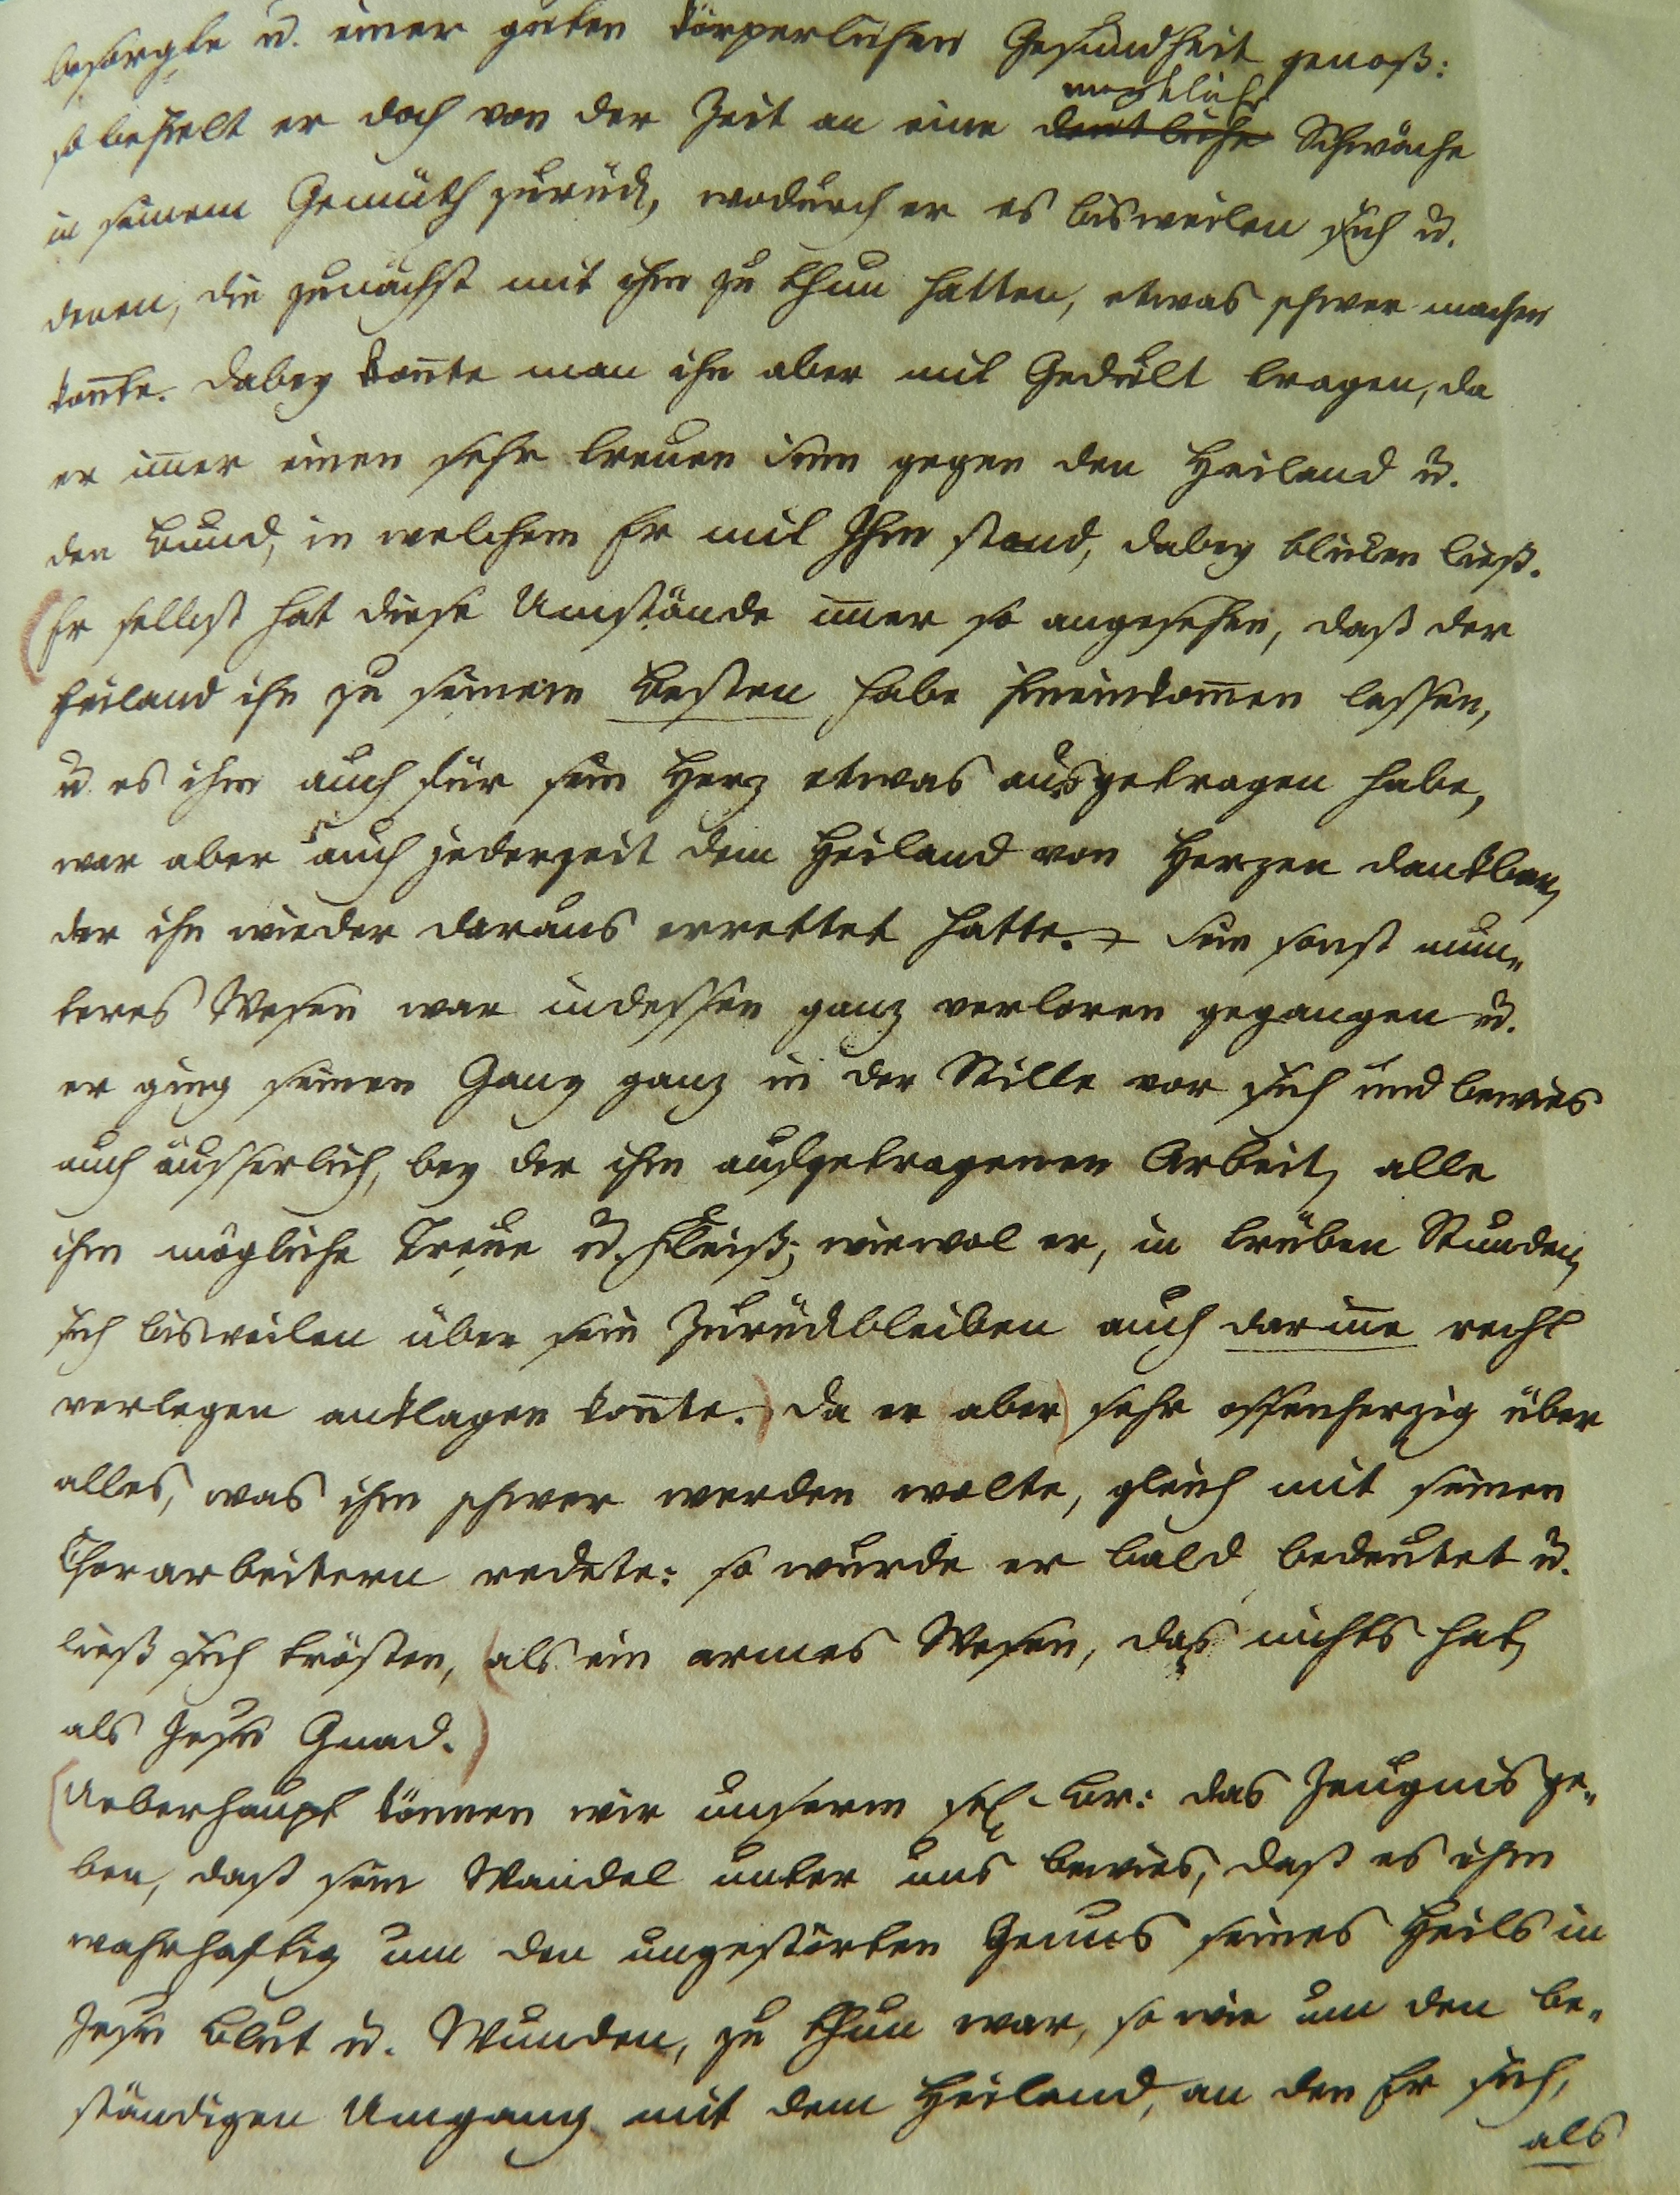 besorgte u. einer guten körperlichen Gesundheit genoß:
merkliche
so behielt er doch von der Zeit an eine deutliche Schwäche
in seinem Gemüth zurück, wodurch er es bisweilen sich u.
denen, die zunächst mit ihm zu thun hatten, etwas schwer machen
kon̄te. Dabey kon̄te man ihn aber mit Gedult tragen, da
er im̄er einen sehr treuen Sinn gegen den Heiland u.
den Bund, in welchem Er mit Ihm stand, dabey bliken ließ.
(Er selbst hat diese Umstände im̄er so angesehen, daß der
Heiland ihn zu seinem Besten habe hineinkom̄en lassen,
u. es ihm auch für sein Herz etwas ausgetragen habe,
war aber auch jederzeit dem Heiland von Herzen dankbar,
der ihn wieder daraus errettet hatte. Sein sonst mun„
teres Wesen war indessen ganz verloren gegangen u.
er ging seinen Gang ganz in der Stille vor sich und bewies
auch äusserlich, bey der ihm aufgetragenen Arbeit, alle
ihm mögliche Treue u. Fleiß; wiewol er, in trüben Stunden,
sich bisweilen über sein Zurückbleiben auch darin̄e recht
verlegen anklagen kon̄te.) Da er (aber) sehr offenherzig über
alles, was ihm schwer werden wolte, gleich mit seinen
Chorarbeitern redete: so wurde er bald bedeutet u.
ließ sich trösten, (als ein armes Wesen, das nichts hat,
als Jesu Gnad.)
(Ueberhaupt können wir unserm sel. Br: das Zeugnis ge„
ben, daß sein Wandel unter uns bewies, daß es ihm
wahrhaftig um den ungestörten Genus seines Heils in
Jesu Blut u. Wunden, zu thun war, so wie um den be„
ständigen Umgang mit dem Heiland, an den Er sich,
als